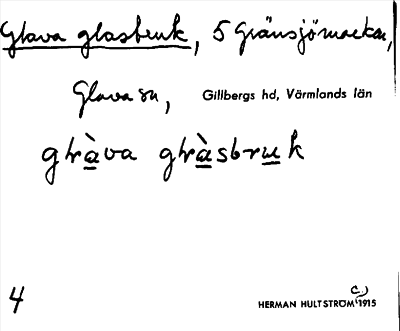 Glava glasbruk, 5 Gränsjömarken,
Glava sn, Gillbergs hd, Värmlands län
glàva glàsbruk
c.)
4 HERMAN HULTSTRÖM 1915